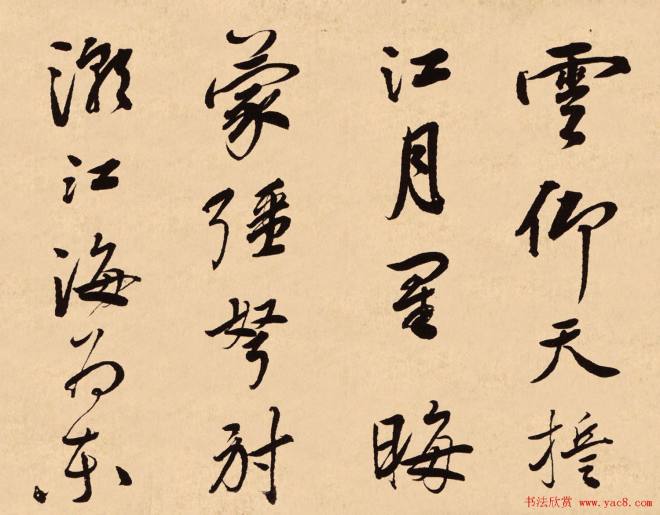 雲仰天誓
江月星晦
蒙彊弩射
潮江海為東
书法欣赏 www.yac8.com